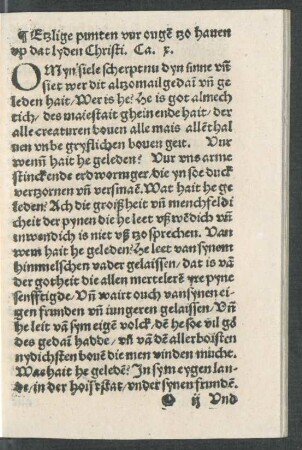 ¶ Etzlige punten vur ougē tzo hauen
vp dat lyden Christi. Ca. x.
O Myn siele scherpt nu dyn sinne vñ
siet wer dit altzomail gedaī vñ ge
leden hait/ Wer is he? he is got almech
tich/ des maiestait ghein ende hait/ der
alle creaturen bouen alle mais allēthal
uen vnbegryflichen bouen geit. Vur
wenn hait he geleden? Vur vns arme
stinckende erdwormger/ die yn soe duck
vertzornen vñ versmaē. Wat hait he ge
leden? Ach die groißheit vñ menchfeldi
cheit der pynen die he leet vß wēdich vñ
inwendich is niet vß tzo sprechen. Van
wem hait he geleden? he leet van synem
himmelschen vader gelaissen/ dat is vā
der gotheit die allen mertelerē yre pyne
senfftigde/ Vñ wairt ouch van synen ei-
gen frunden vñ iungeren gelaissen/ Vñ
he leit vā sym eigē volck/ dē he soe vil gō
des gedaī hadde/ vñ vā dē allerboisten
nydichsten bouē die men vinden mücht.
Wae hait he geledē? In sym eygen lan-
de/ in der hoifstat/ vnder synen frundē.
O ij Vnd